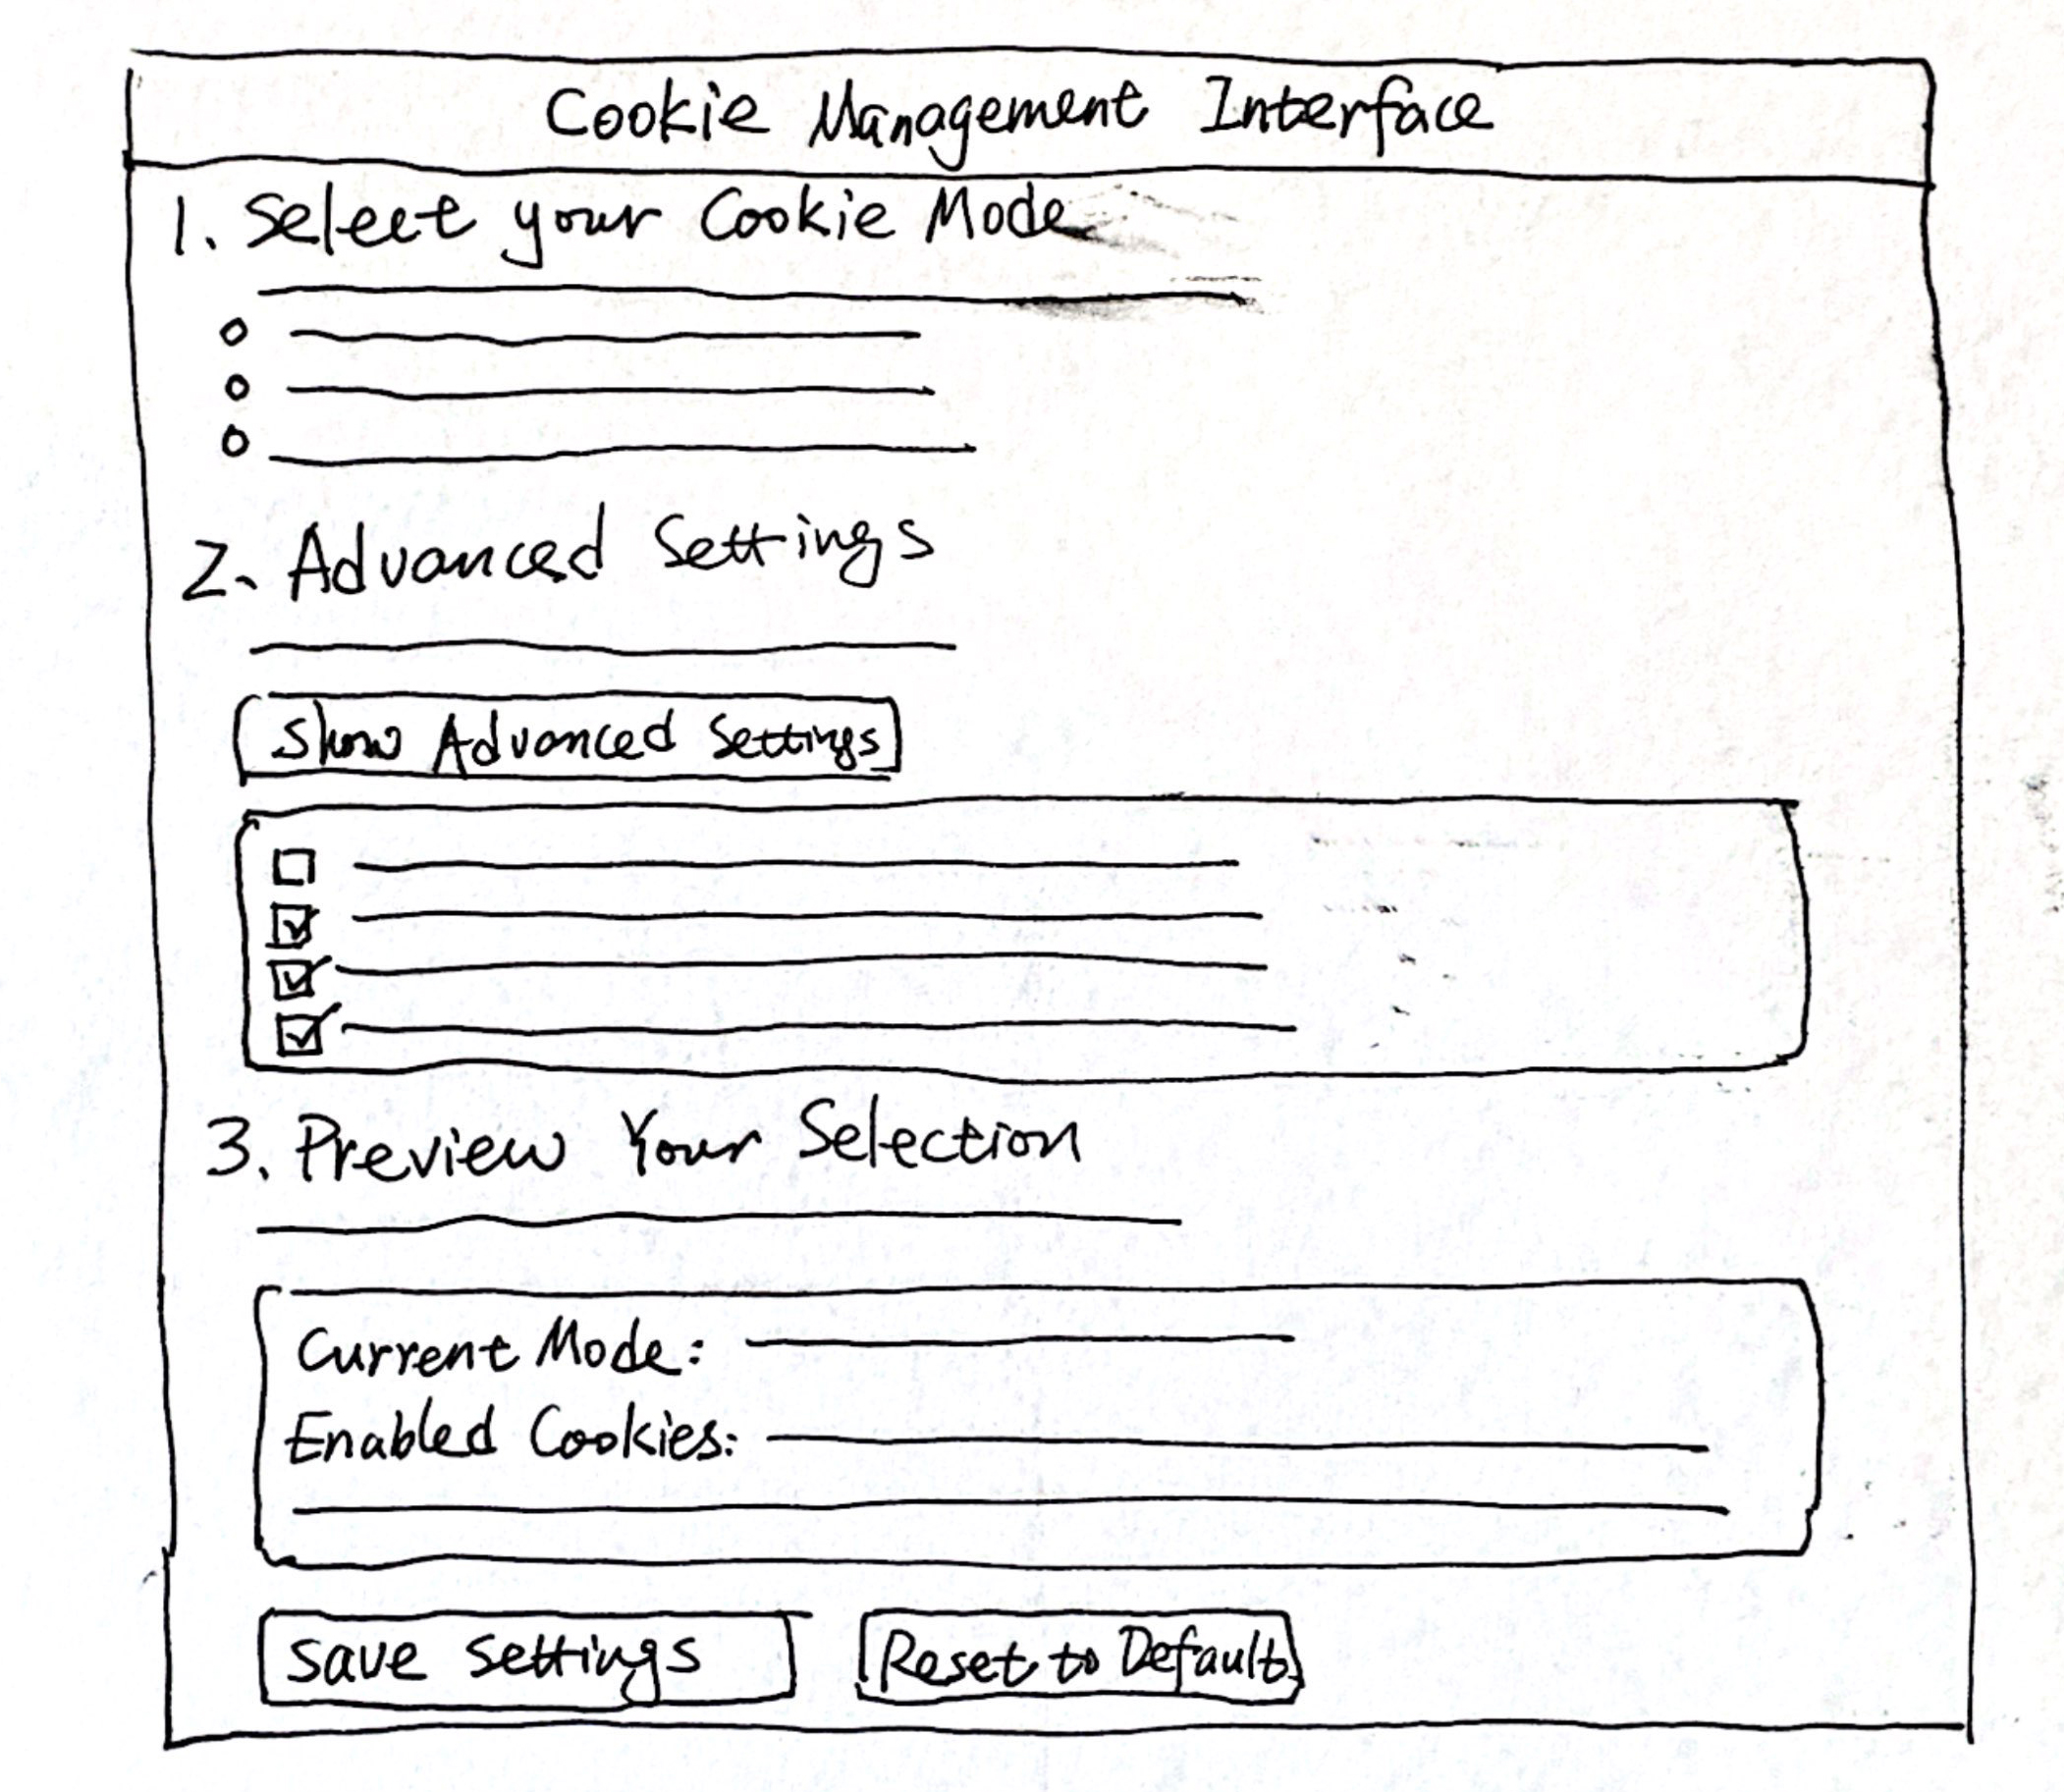 Cookie Management Interface
1. Select your Cookie Mode
2. Advanced Settings
Show Advanced Settings
3. Preview Your Selection
Current Mode:
Enabled Cookies:
Save Settings
Reset to Default